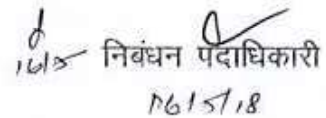 16/5 निबंधन पदाधिकारी
16/5/18